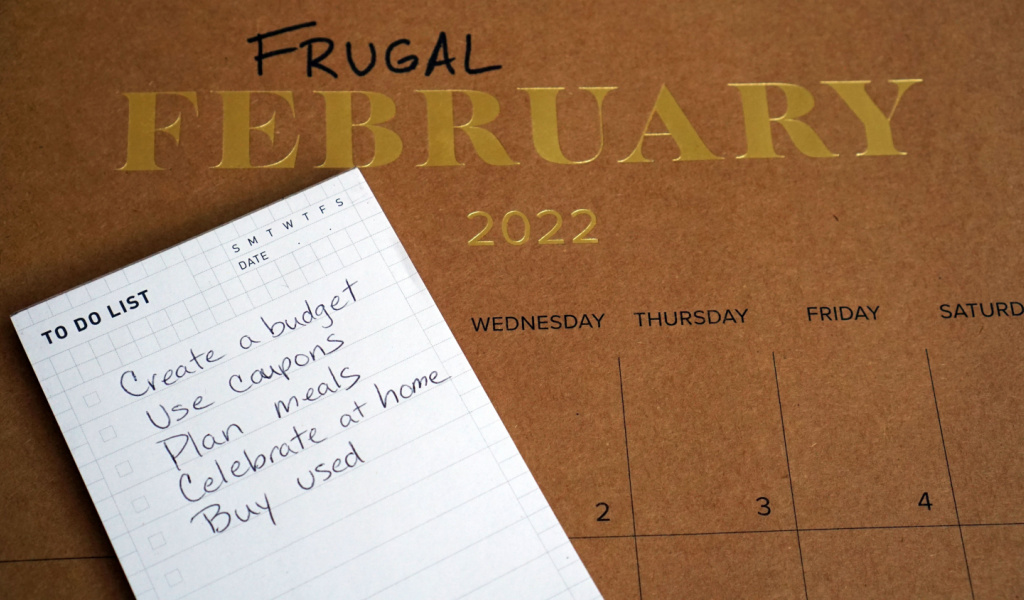 FRUGAL
FEBRUARY
2022
WEDNESDAY THURSDAY FRIDAY SATURD
2 3 4
S M T W T F S
DATE
TO DO LIST
Create a budget
Use coupons
Plan meals
Celebrate at home
Buy used